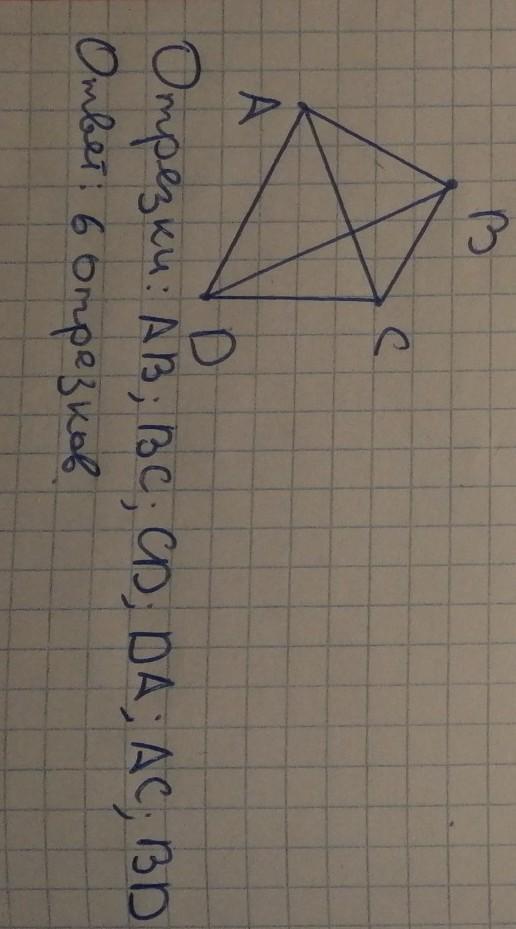 B
A
C
D
Отрезки: AB; BC; CD; DA; AC; BD
Ответ: 6 отрезков.